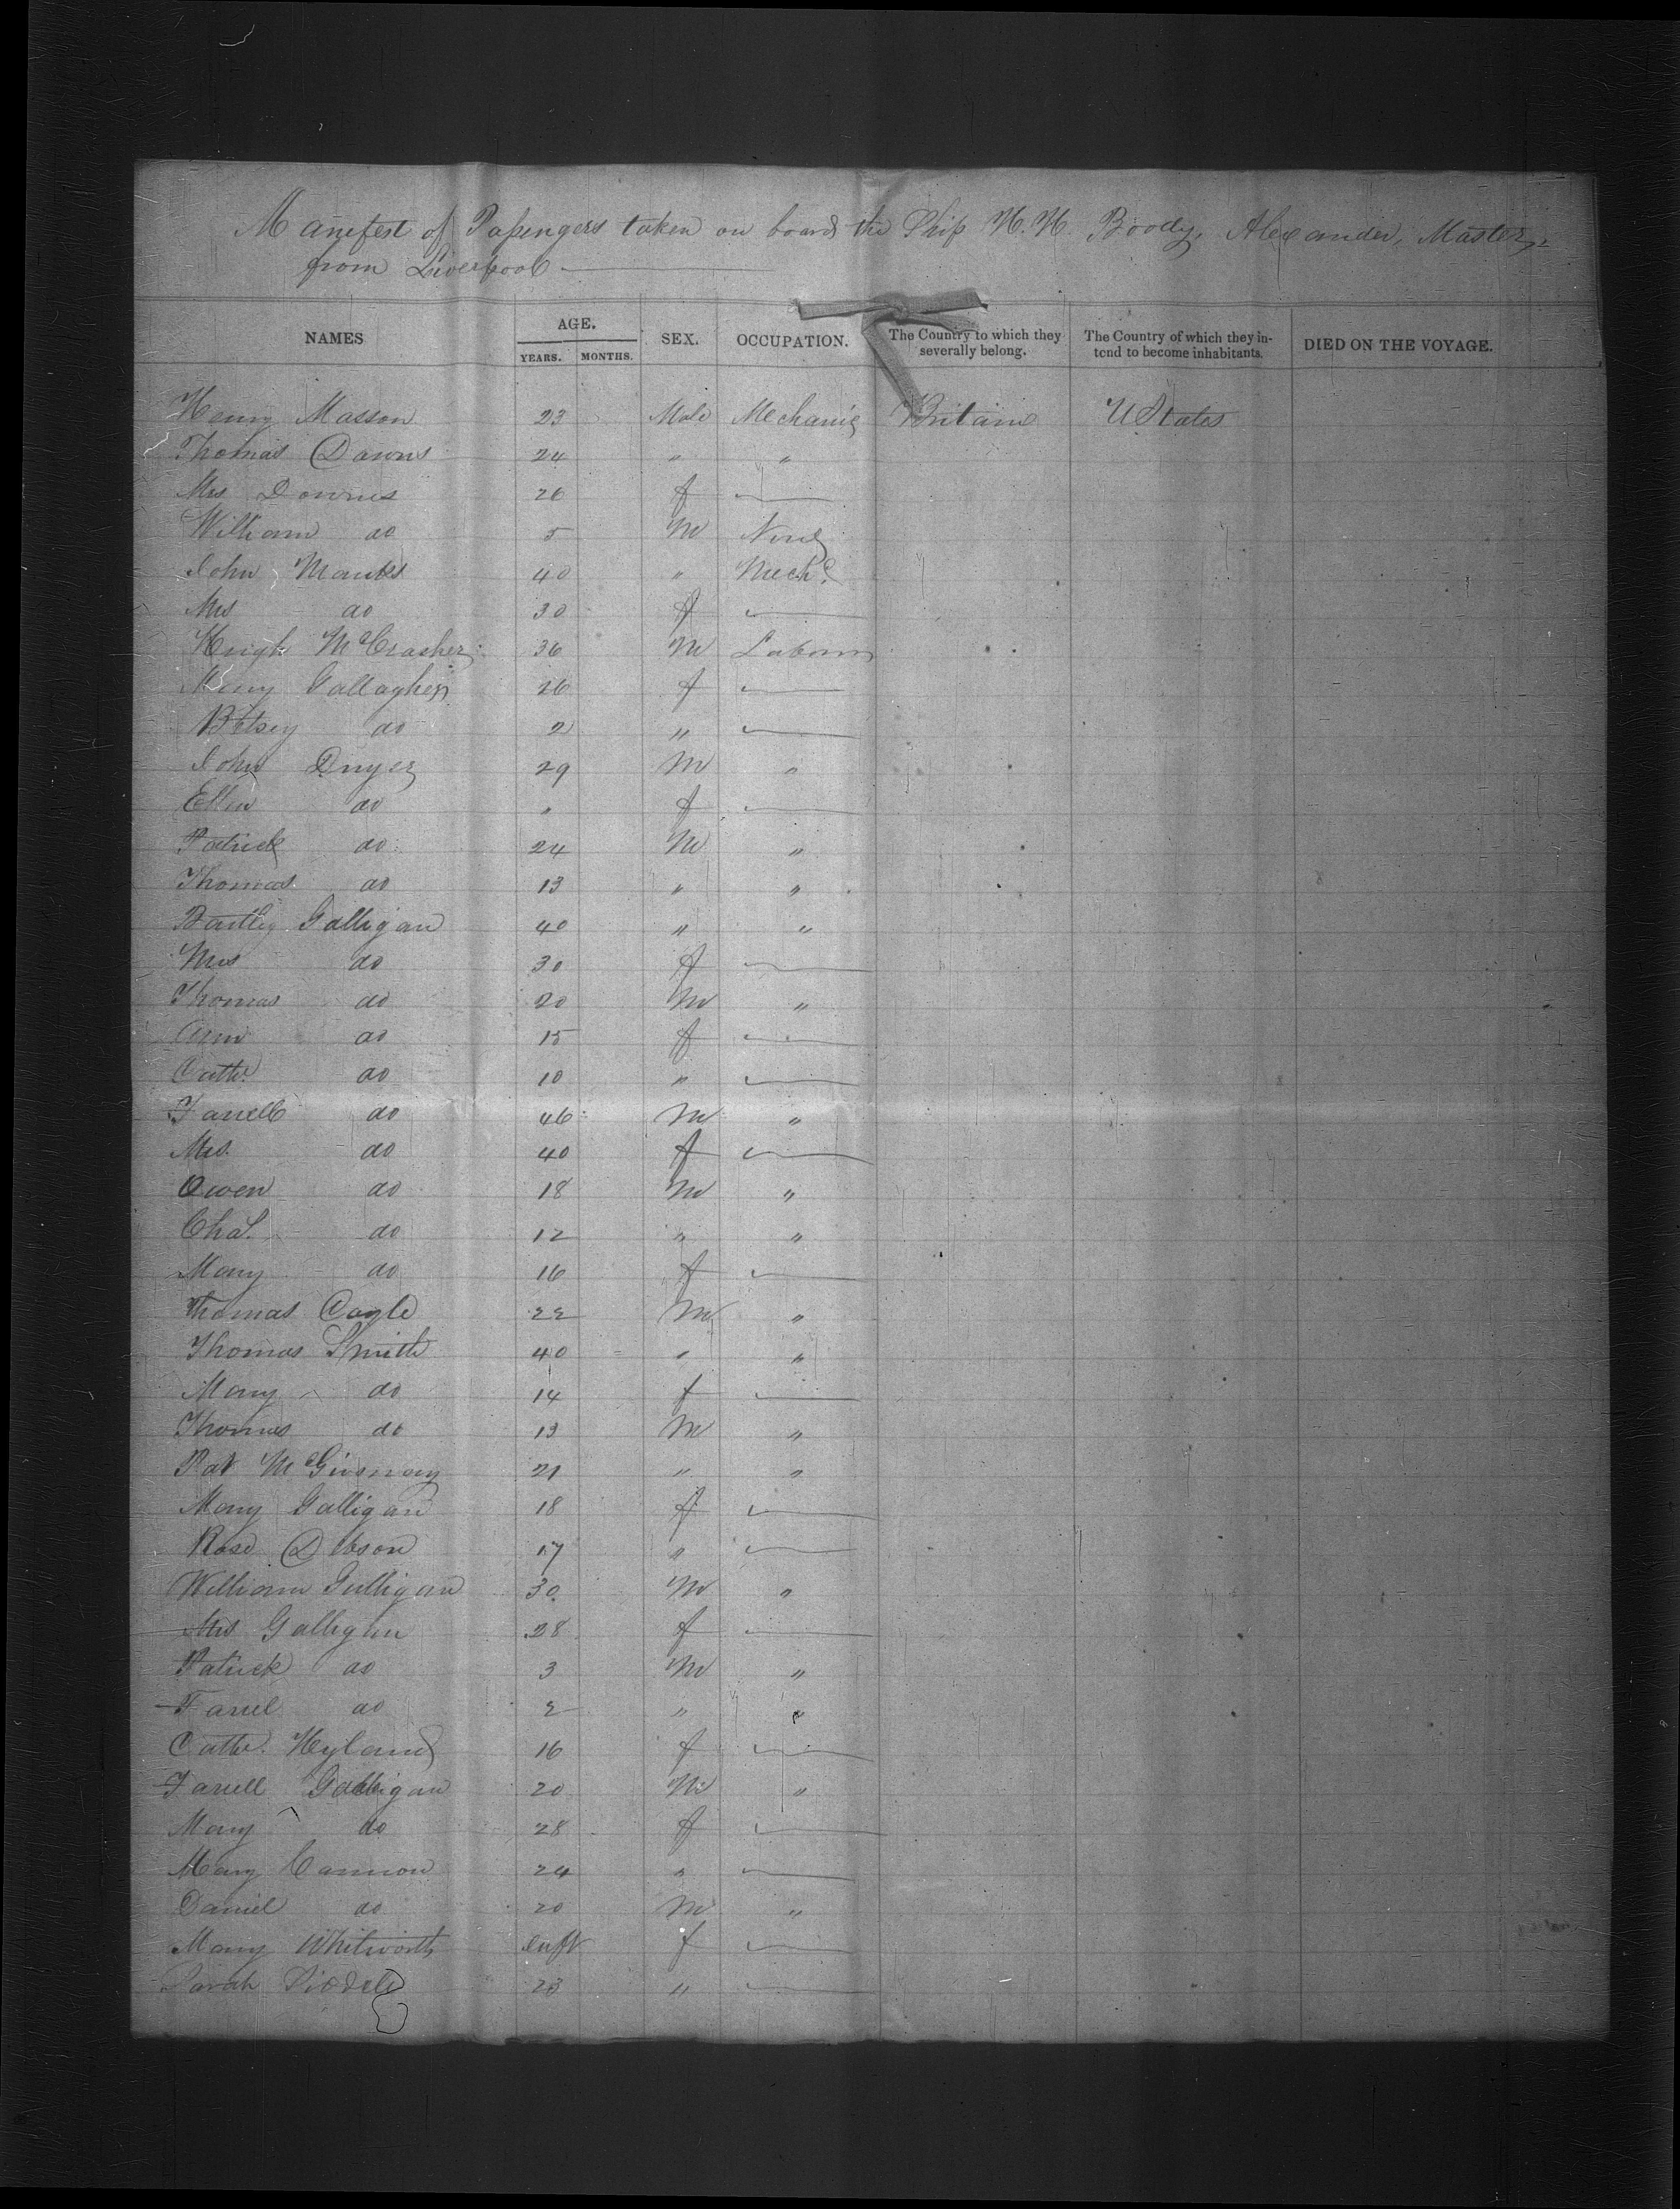 Manefest of Passengers taken on board the Ship H. H. Boody, Alexander, Master,
from Liverpool
NAMES AGE. YEARS. MONTHS. SEX. OCCUPATION. The Country to which they severally belong. The Country of which they intend to become inhabitants. DIED ON THE VOYAGE.
Henry Masson 23 Male Mechanic Britain U States
Thomas Downs 24 " "
Mrs Downes 26 f
William do 5 M None
John Manks 40 " Mechc
Mrs do 30 f
Hugh McCrasher 36 M Laborer
Mary Gallagher 26 f
Betsey do 2 "
John Dwyer 29 M "
Ellen do " f
Patrick do 24 M "
Thomas do 13 " "
Bartley Galligan 40 " "
Mrs do 30 f
Thomas do 20 M "
Ann do 15 f
Cathe. do 10 "
Farrell do 46 M "
Mrs. do 40 f
Owen do 18 M "
Chas. do 12 " "
Mary do 16 f
Thomas Coyle 22 M "
Thomas Smith 40 " "
Mary do 14 f
Thomas do 13 M "
Pat 21 " "
Mary Galligan 18 f
Rose 17 "
William Gulligan 30 M "
Mrs Galligan 28 f
Patrick do 3 M "
Farrel do 2 " "
Cathe. Hyland 16 f
Farrell Galligan 20 M "
Mary do 28 f
Mary Cannon 24 "
Daniel do 20 M "
Mary Whitworth Inft f
Sarah 23 "